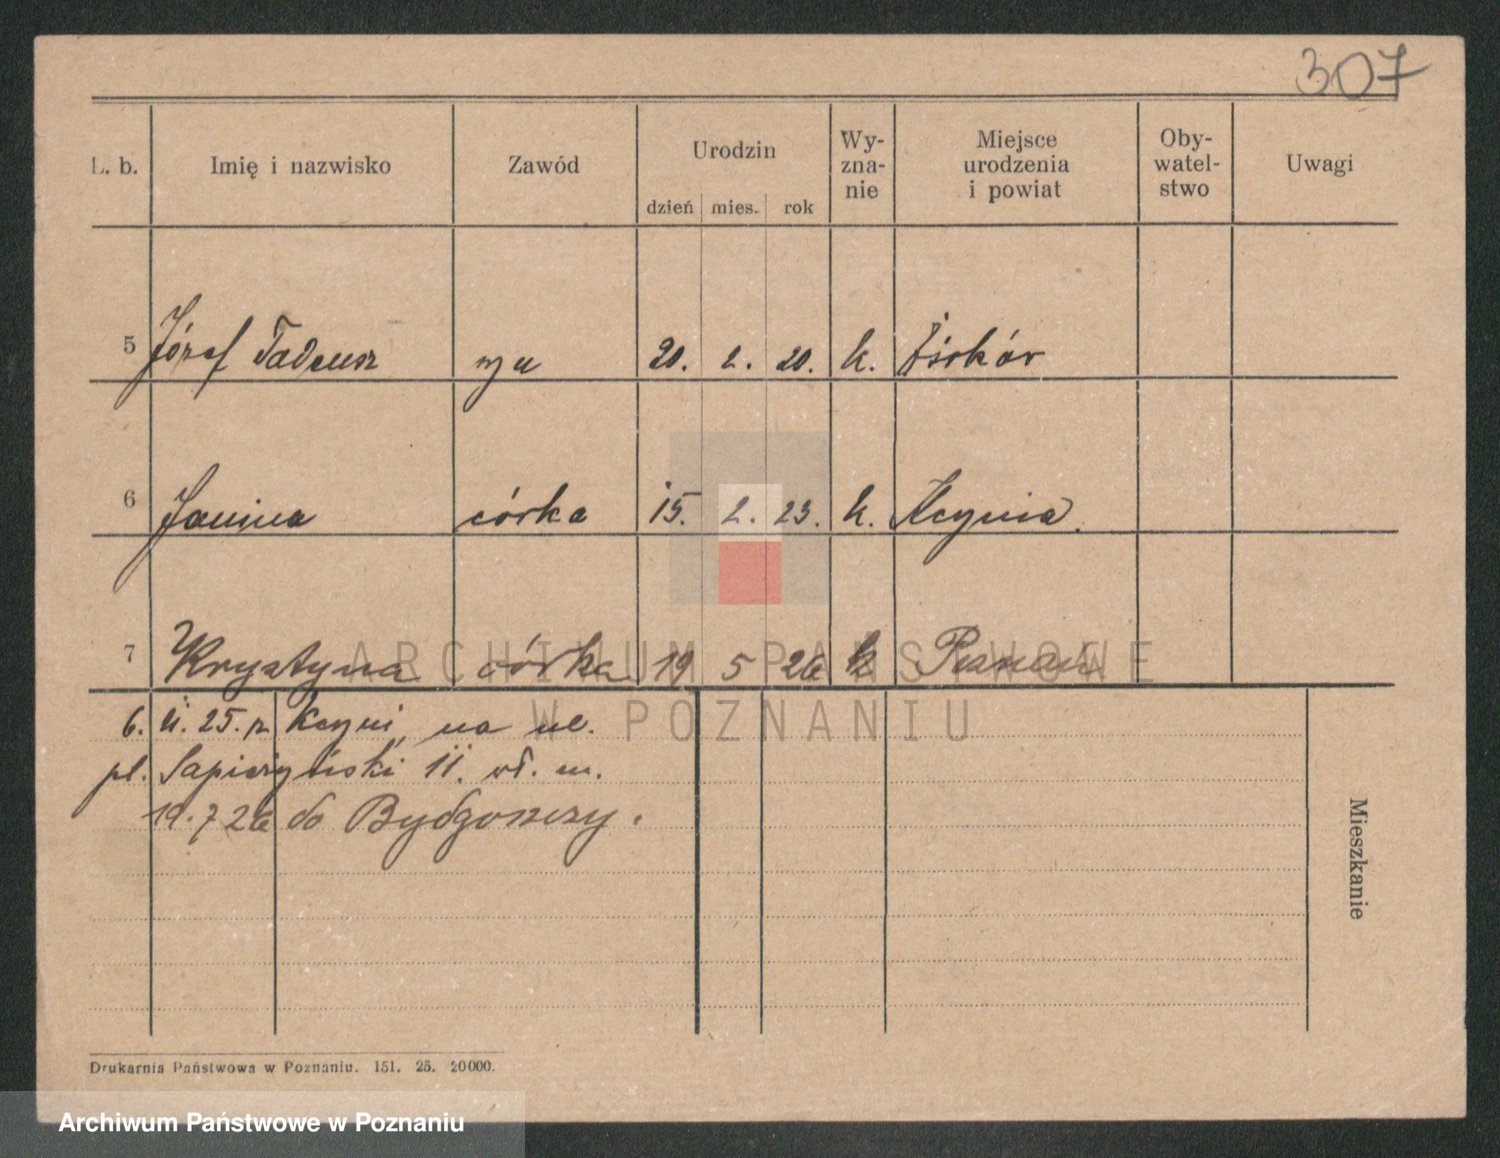 307
L. b. Imię i nazwisko Zawód Urodzin dzień mies. rok Wy- zna- nie Miejsce urodzenia i powiat Oby- watel- stwo Uwagi
5 Józef Tadeusz 20. 2. 20. k.
6 Janina córka 15. 2. 23. k. Kcynia.
7 Krystyna córka 19 5 26 k Poznań
6. 11. 25. z Kcyni, na ul.
pl. Sapieżyński 11. wł. m.
19. 7 26 do Bydgoszczy.
Mieszkanie
Drukarnia Państwowa w Poznaniu. 151. 25. 20000.
ARCHIWUM PAŃSTWOWE
W POZNANIU
Archiwum Państwowe w Poznaniu